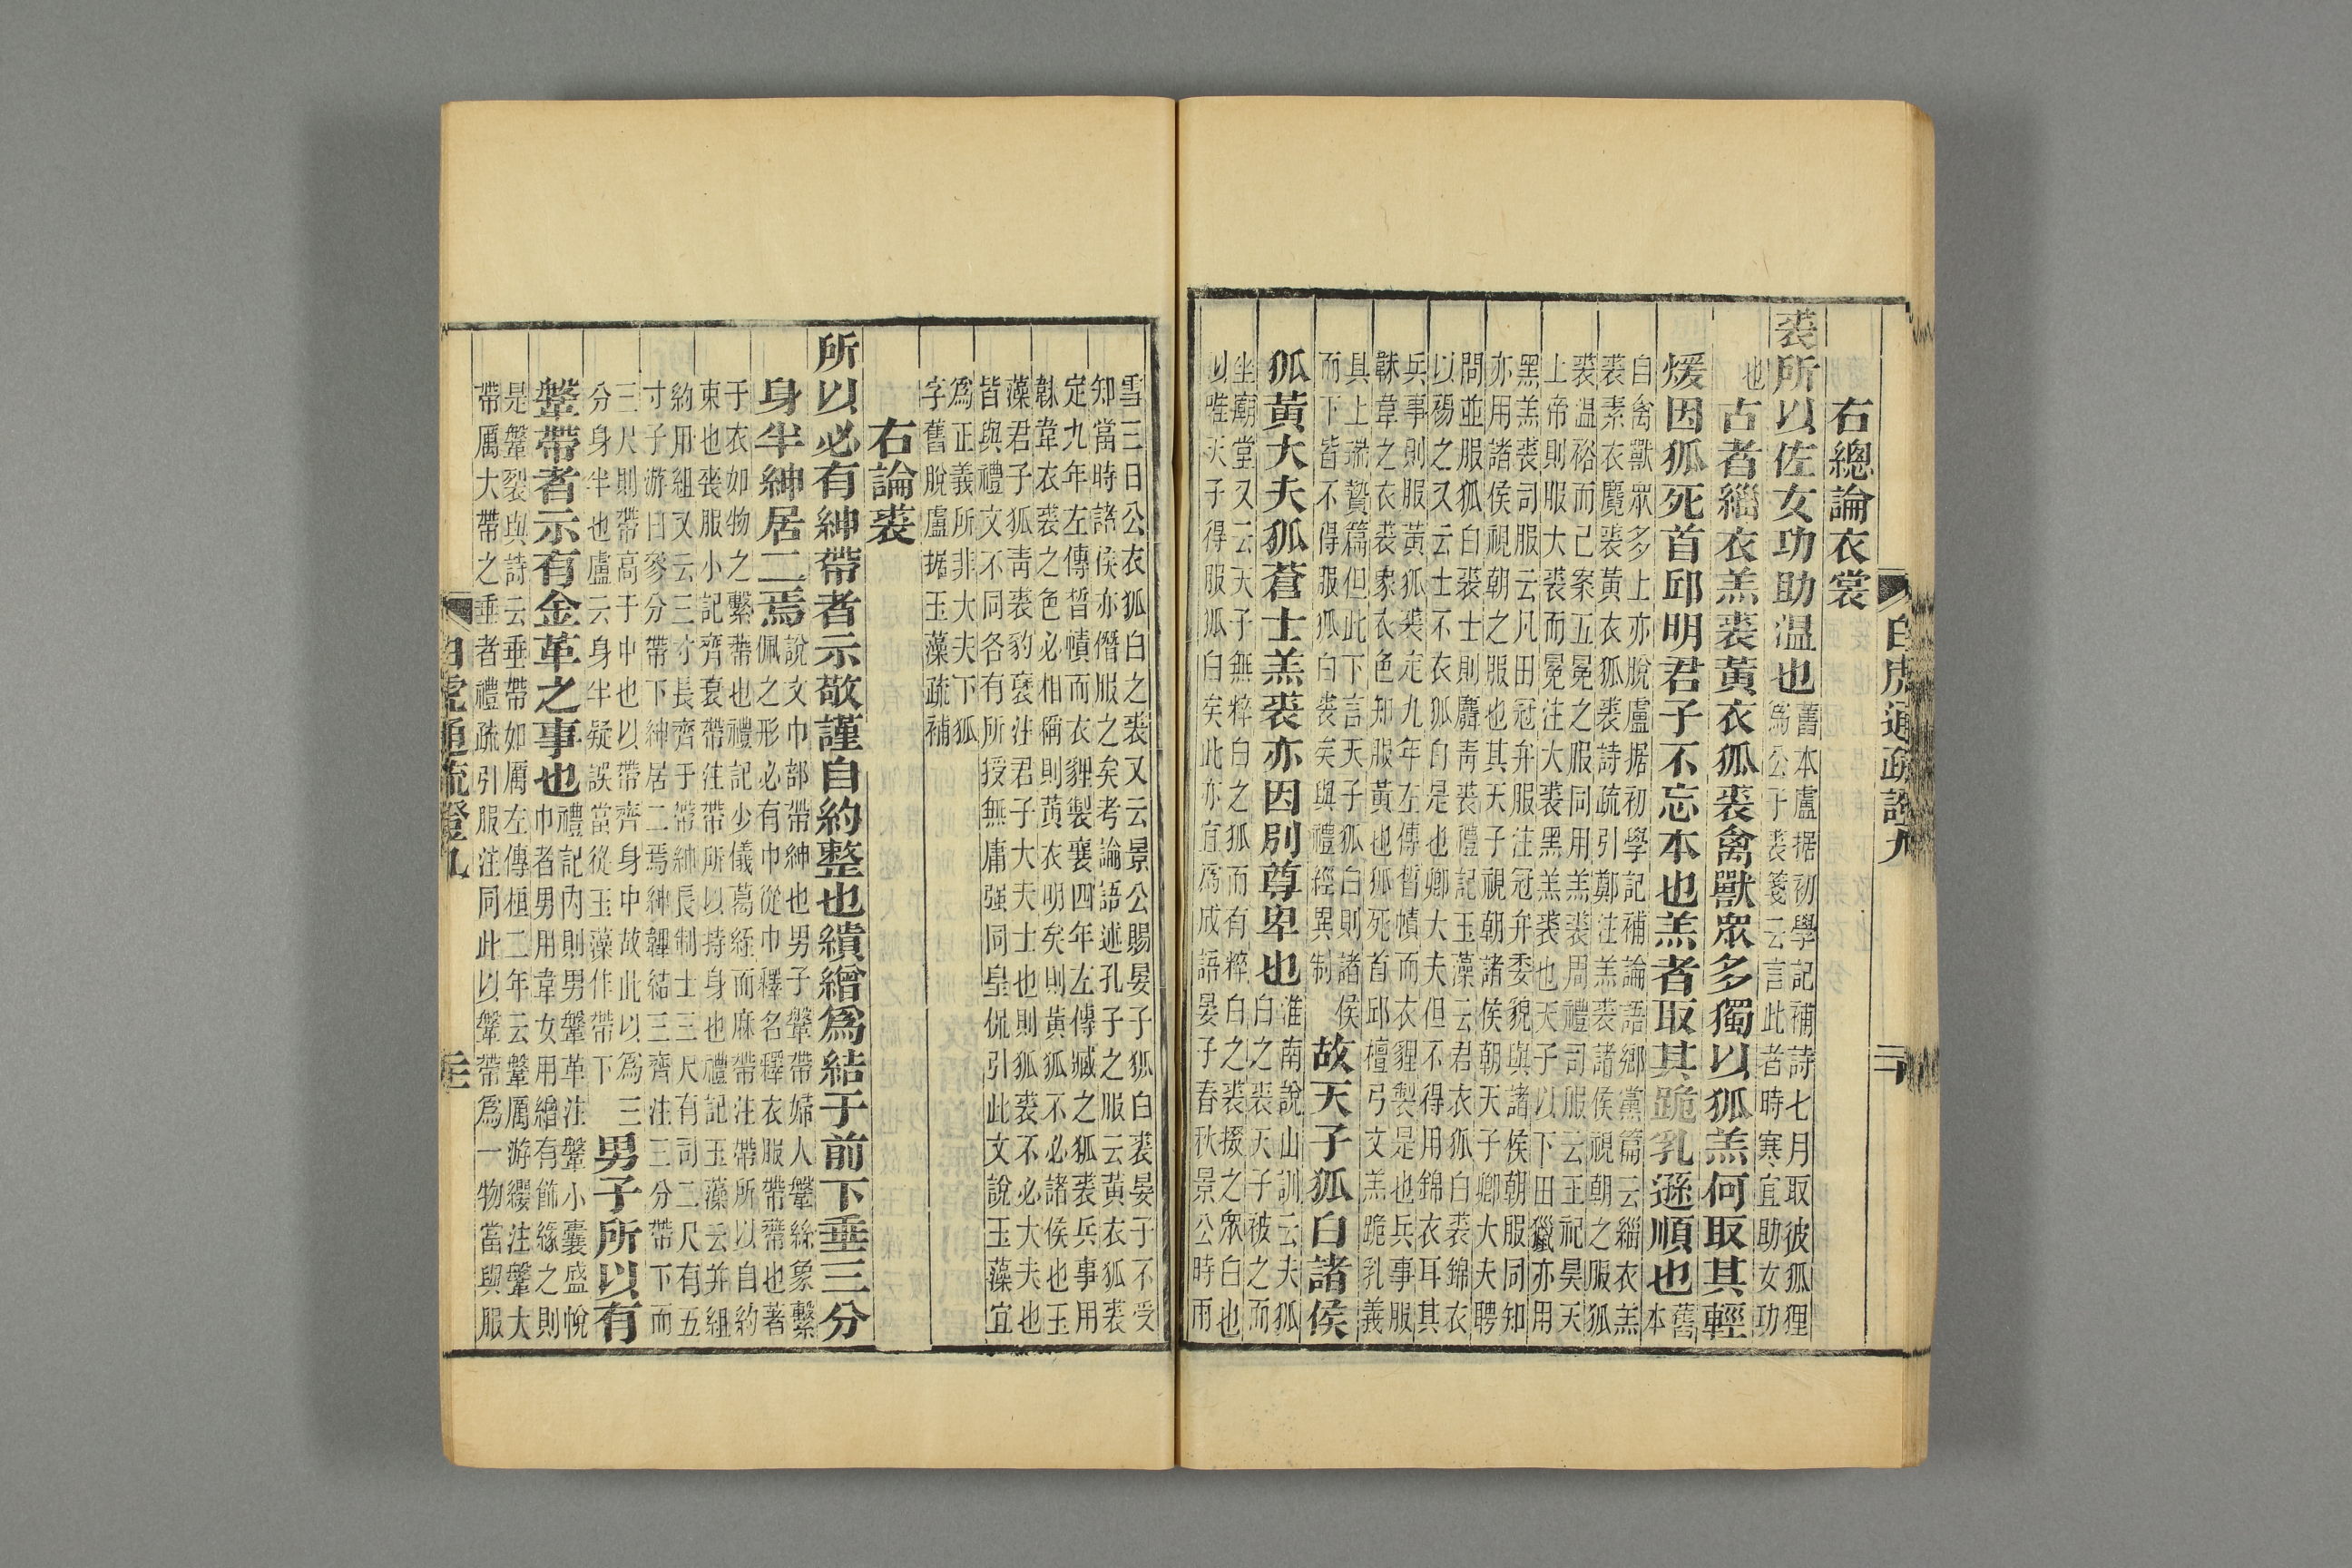 白虎通疏證九
二十
右總論衣裳
裘所以佐女功助温也舊本盧据初學記補詩七月取彼狐狸
爲公子裘箋云言此者時寒宜助女功
也古者緇衣羔裘黃衣狐裘禽獸眾多獨以狐羔何取其輕
煖因狐死首邱明君子不忘本也羔者取其跪乳遜順也舊
本
自禽獸眾多上亦脫盧据初學記補論語鄉黨篇云緇衣羔
裘素衣麑裘黃衣狐裘詩疏引鄭注羔裘諸侯視朝之服狐
裘温裕而已案五冕之服同用羔裘周禮司服云王祀昊天
上帝則服大裘而冕注大裘黑羔裘也天子以下田獵亦用
黑羔裘司服云凡田冠弁服注冠弁委貌與諸侯朝服同知
亦用諸侯視朝之服也其天子視朝諸侯朝天子卿大夫聘
問並服狐白裘士則麛青裘禮記玉藻云君衣狐白裘錦衣
以裼之又云士不衣狐白是也卿大夫但不得用錦衣耳其
兵事則服黃狐裘定九年左傳晳幘而衣貍製是也兵事服
韎韋之衣裘象衣色知服黃也狐死首邱檀弓文羔跪乳義
具上瑞贄篇但此下言天子狐白則諸侯
而下皆不得服狐白裘矣與禮經異制
故天子狐白諸侯
狐黃大夫狐蒼士羔裘亦因別尊卑也淮南說山訓云夫狐
白之裘天子被之而
坐廟堂又云天子無粹白之狐而有粹白之裘掇之眾白也
以唯天子得服狐白矣此亦宜爲成語晏子春秋景公時雨
雪三日公衣狐白之裘又云景公賜晏子狐白裘晏子不受
知當時諸侯亦僭服之矣考論語述孔子之服云黃衣狐裘
定九年左傳晳幘而衣貍製襄四年左傳臧之狐裘兵事用
韎韋衣裘之色必相稱則黃衣明矣則黃狐不必諸侯也玉
藻君子狐青裘豹褎注君子大夫士也則狐裘不必大夫也
皆與禮文不同各有所授無庸强同皇侃引此文說玉藻宜
爲正義所非大夫下狐
字舊脫盧据玉藻疏補
右論裘
所以必有紳帶者示敬謹自約整也繢繒爲結于前下垂三分
身半紳居二焉說文巾部帶紳也男子鞶帶婦人鞶絲象繫
佩之形必有巾從巾釋名釋衣服帶蔕也著
于衣如物之繫蔕也禮記少儀葛絰而麻帶注帶所以自約
束也喪服小記齊衰帶注帶所以持身也禮記玉藻云并紐
約用組又云三寸長齊于帶紳長制士三尺有司二尺有五
寸子游曰參分帶下紳居二焉紳韠結三齊注三分帶下而
三尺則帶高于中也以帶齊身中故此以爲三
分身半也盧云身半疑誤當從玉藻作帶下
男子所以有
鞶帶者示有金革之事也禮記內則男鞶革注鞶小囊盛帨
巾者男用韋女用繒有飾緣之則
是鞶裂與詩云垂帶如厲左傳桓二年云鞶厲游纓注鞶大
帶厲大帶之垂者禮疏引服注同此以鞶帶爲一物當與服
白虎通疏證九